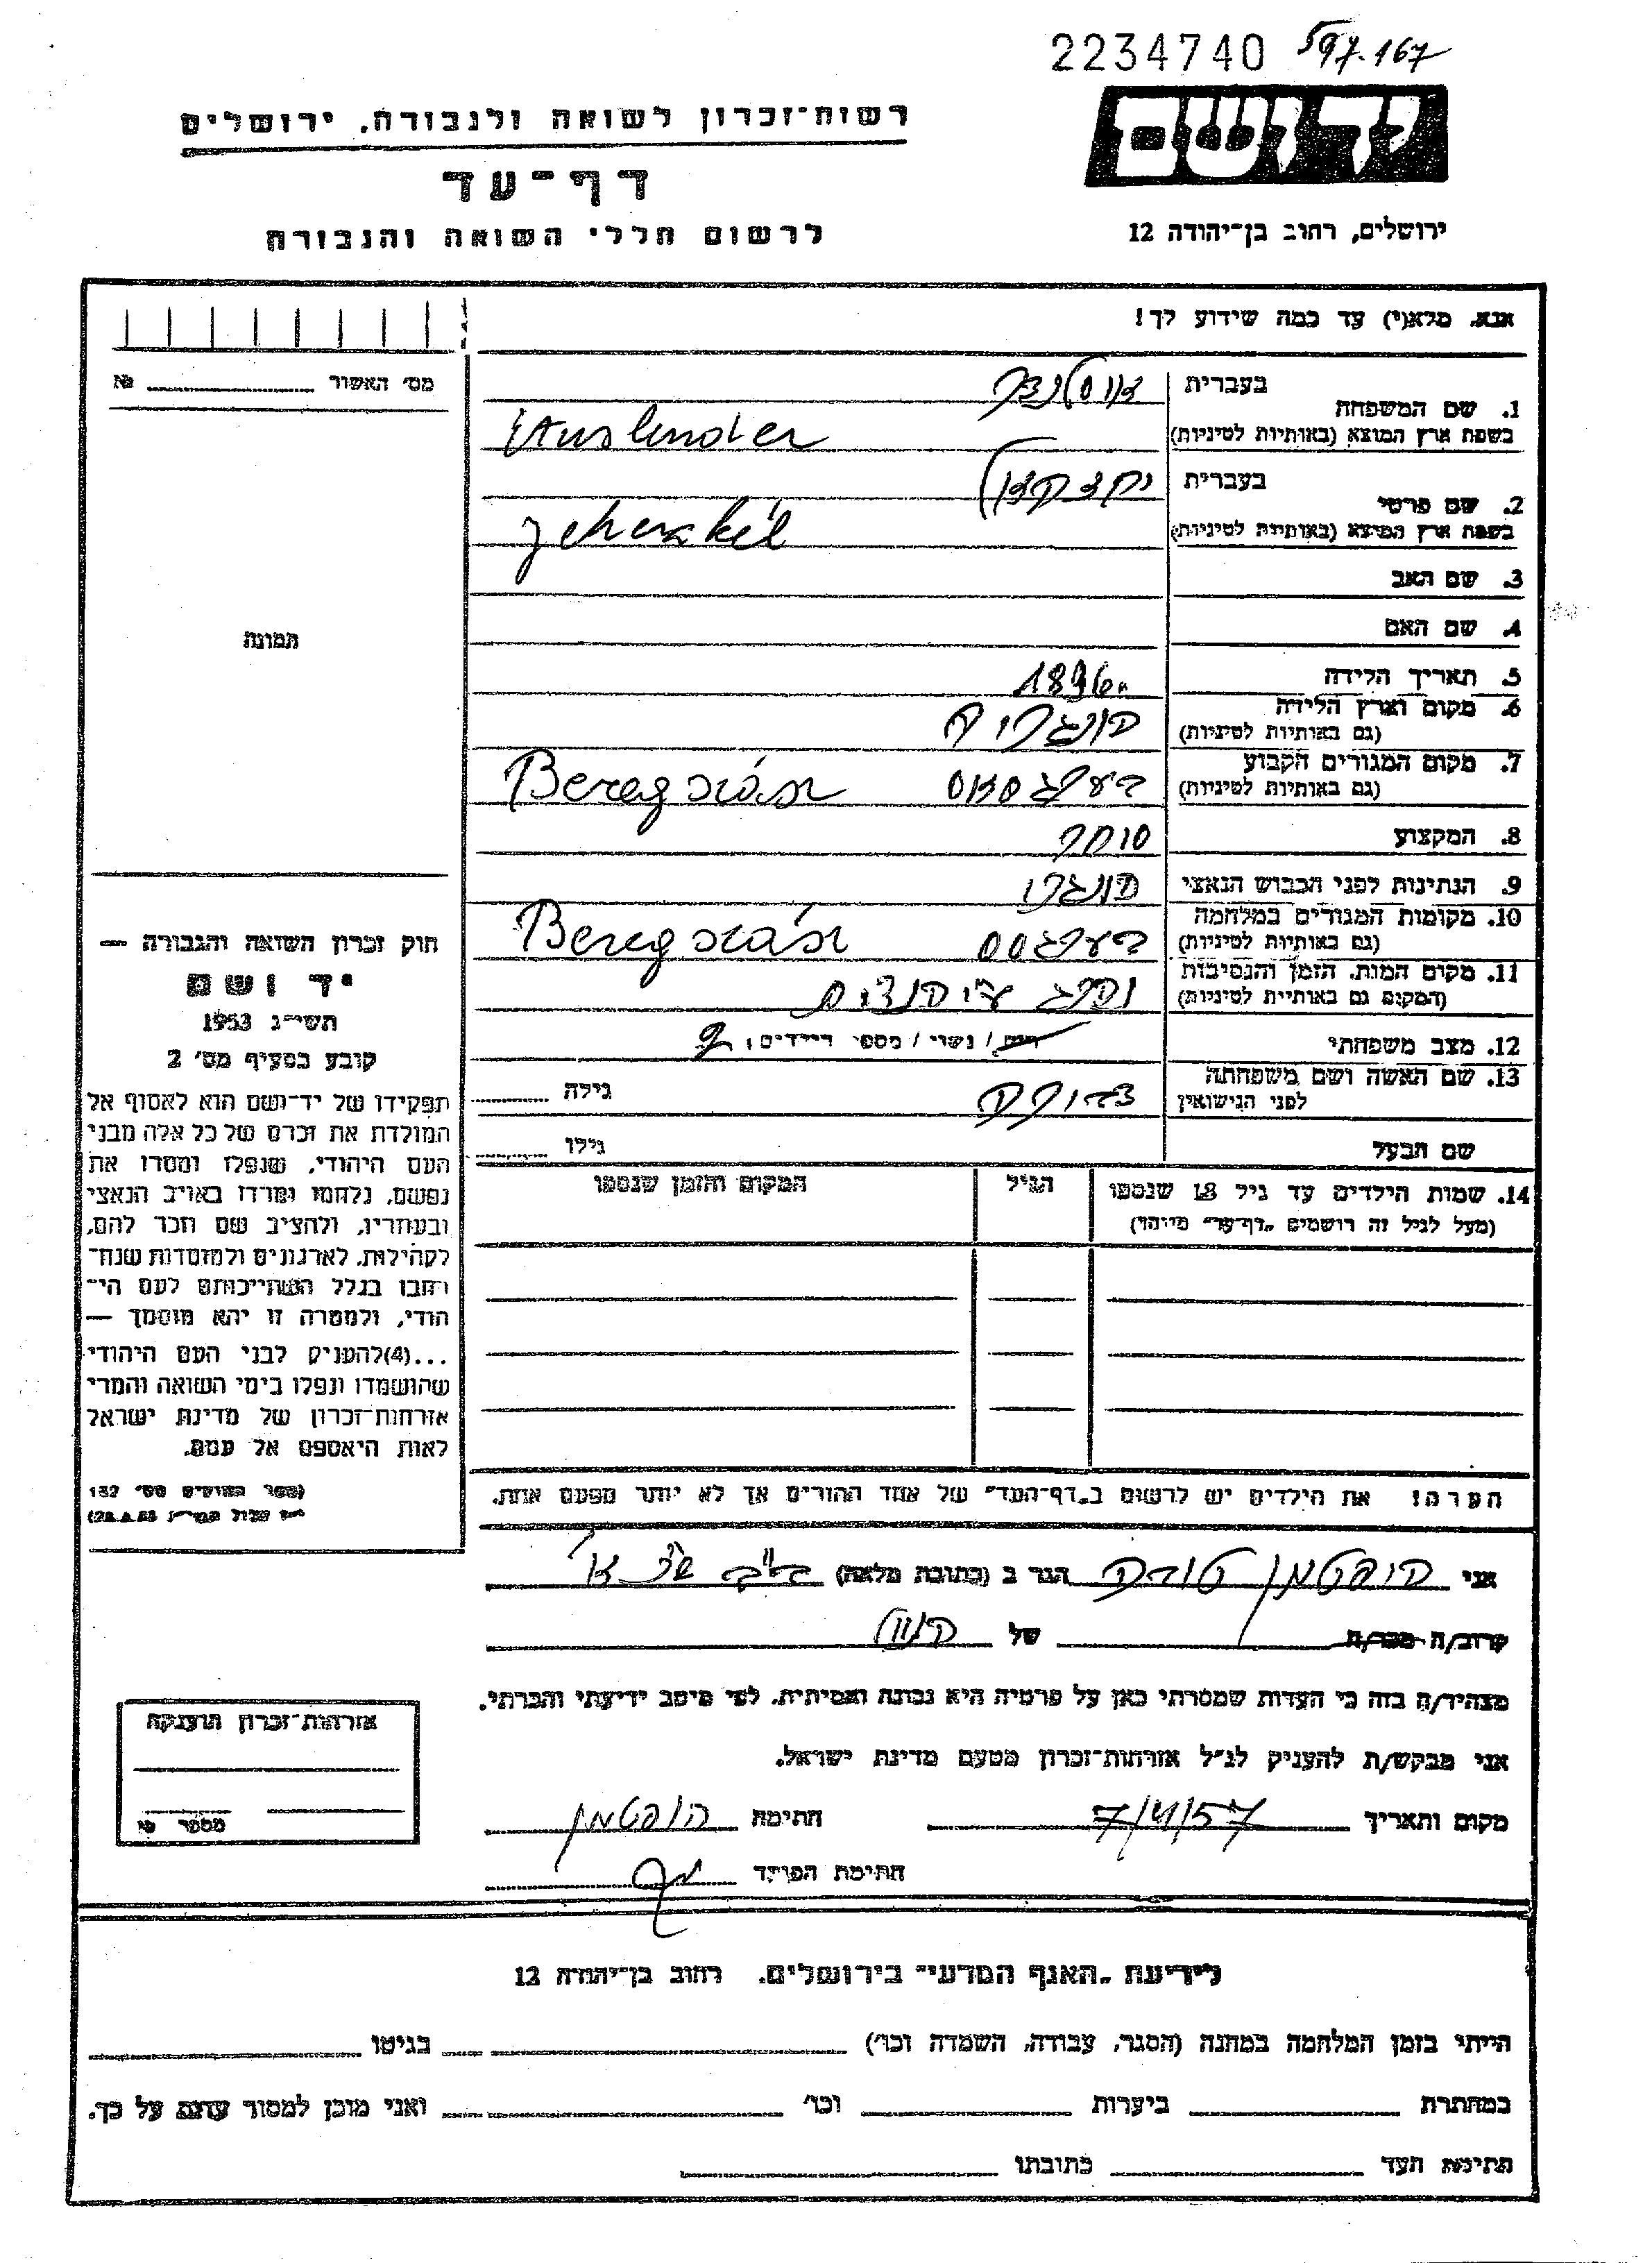 2234740 597.167
יד ושם
רשות־זכרון לשואה ולגבורה, ירושלים
דף־עד
לרשום חללי השואה והגבורה
ירושלים, רחוב בן־יהודה 12
אנא, מלא(י) עד כמה שידוע לך!
מס׳ האשור №
1. שם המשפחה בעברית אוסלנדר
בשפת ארץ המוצא (באותיות לטיניות) Auslender
2. שם פרטי בעברית יחזקאל
בשפת ארץ המוצא (באותיות לטיניות) Jehezkél
3. שם האב
4. שם האם
5. תאריך הלידה 1896
6. מקום וארץ הלידה הונגריה
(גם באותיות לטיניות)
7. מקום המגורים הקבוע בערגסאס Beregszász
(גם באותיות לטיניות)
8. המקצוע סוחר
9. הנתינות לפני הכבוש הנאצי הונגרי
10. מקומות המגורים במלחמה בערגסס Beregszász
(גם באותיות לטיניות)
11. מקום המות, הזמן והנסיבות
(המקום גם באותיות לטיניות)
12. מצב משפחתי רווק / נשוי / מספר הילדים:
13. שם האשה ושם משפחתה
לפני הנישואין גילה
שם הבעל גילו
14. שמות הילדים עד גיל 18 שנספו הגיל המקום והזמן שנספו
(מעל לגיל זה רושמים „דף־עד״ מיוחד)
הערה! את הילדים יש לרשום ב„דף־העד״ של אחד ההורים אך לא יותר מפעם אחת.
תמונה
חוק זכרון השואה והגבורה —
יד ושם
תשי״ג 1953
קובע בסעיף מס׳ 2
תפקידו של יד־ושם הוא לאסוף אל
המולדת את זכרם של כל אלה מבני
העם היהודי, שנפלו ומסרו את
נפשם, נלחמו ומרדו באויב הנאצי
ובעוזריו, ולהציב שם וזכר להם,
לקהילות, לארגונים ולמוסדות שנח־
רבו בגלל השתייכותם לעם הי־
הודי, ולמטרה זו יהא מוסמך —
...(4)להעניק לבני העם היהודי
שהושמדו ונפלו בימי השואה והמרי
אזרחות־זכרון של מדינת ישראל
לאות היאספם אל עמם.
(ספר החוקים מס׳ 132
אני הופטמן הגר ב (כתובת מלאה)
קרוב/ה מכר/ה של הנ״ל
מצהיר/ה בזה כי העדות שמסרתי כאן על פרטיה היא נכונה ואמיתית, לפי מיטב ידיעתי והכרתי.
אני מבקש/ת להעניק לנ״ל אזרחות־זכרון מטעם מדינת ישראל.
מקום ותאריך 7/4/57 חתימה הופטמן
חתימת הפוקד
אזרחות־זכרון הוענקה
מספר №
לידיעת „האגף המדעי״ בירושלים, רחוב בן־יהודה 12
הייתי בזמן המלחמה במחנה (הסגר, עבודה, השמדה וכו׳) בגיטו
במחתרת ביערות וכו׳ ואני מוכן למסור עדות על כך.
חתימת העד כתובתו